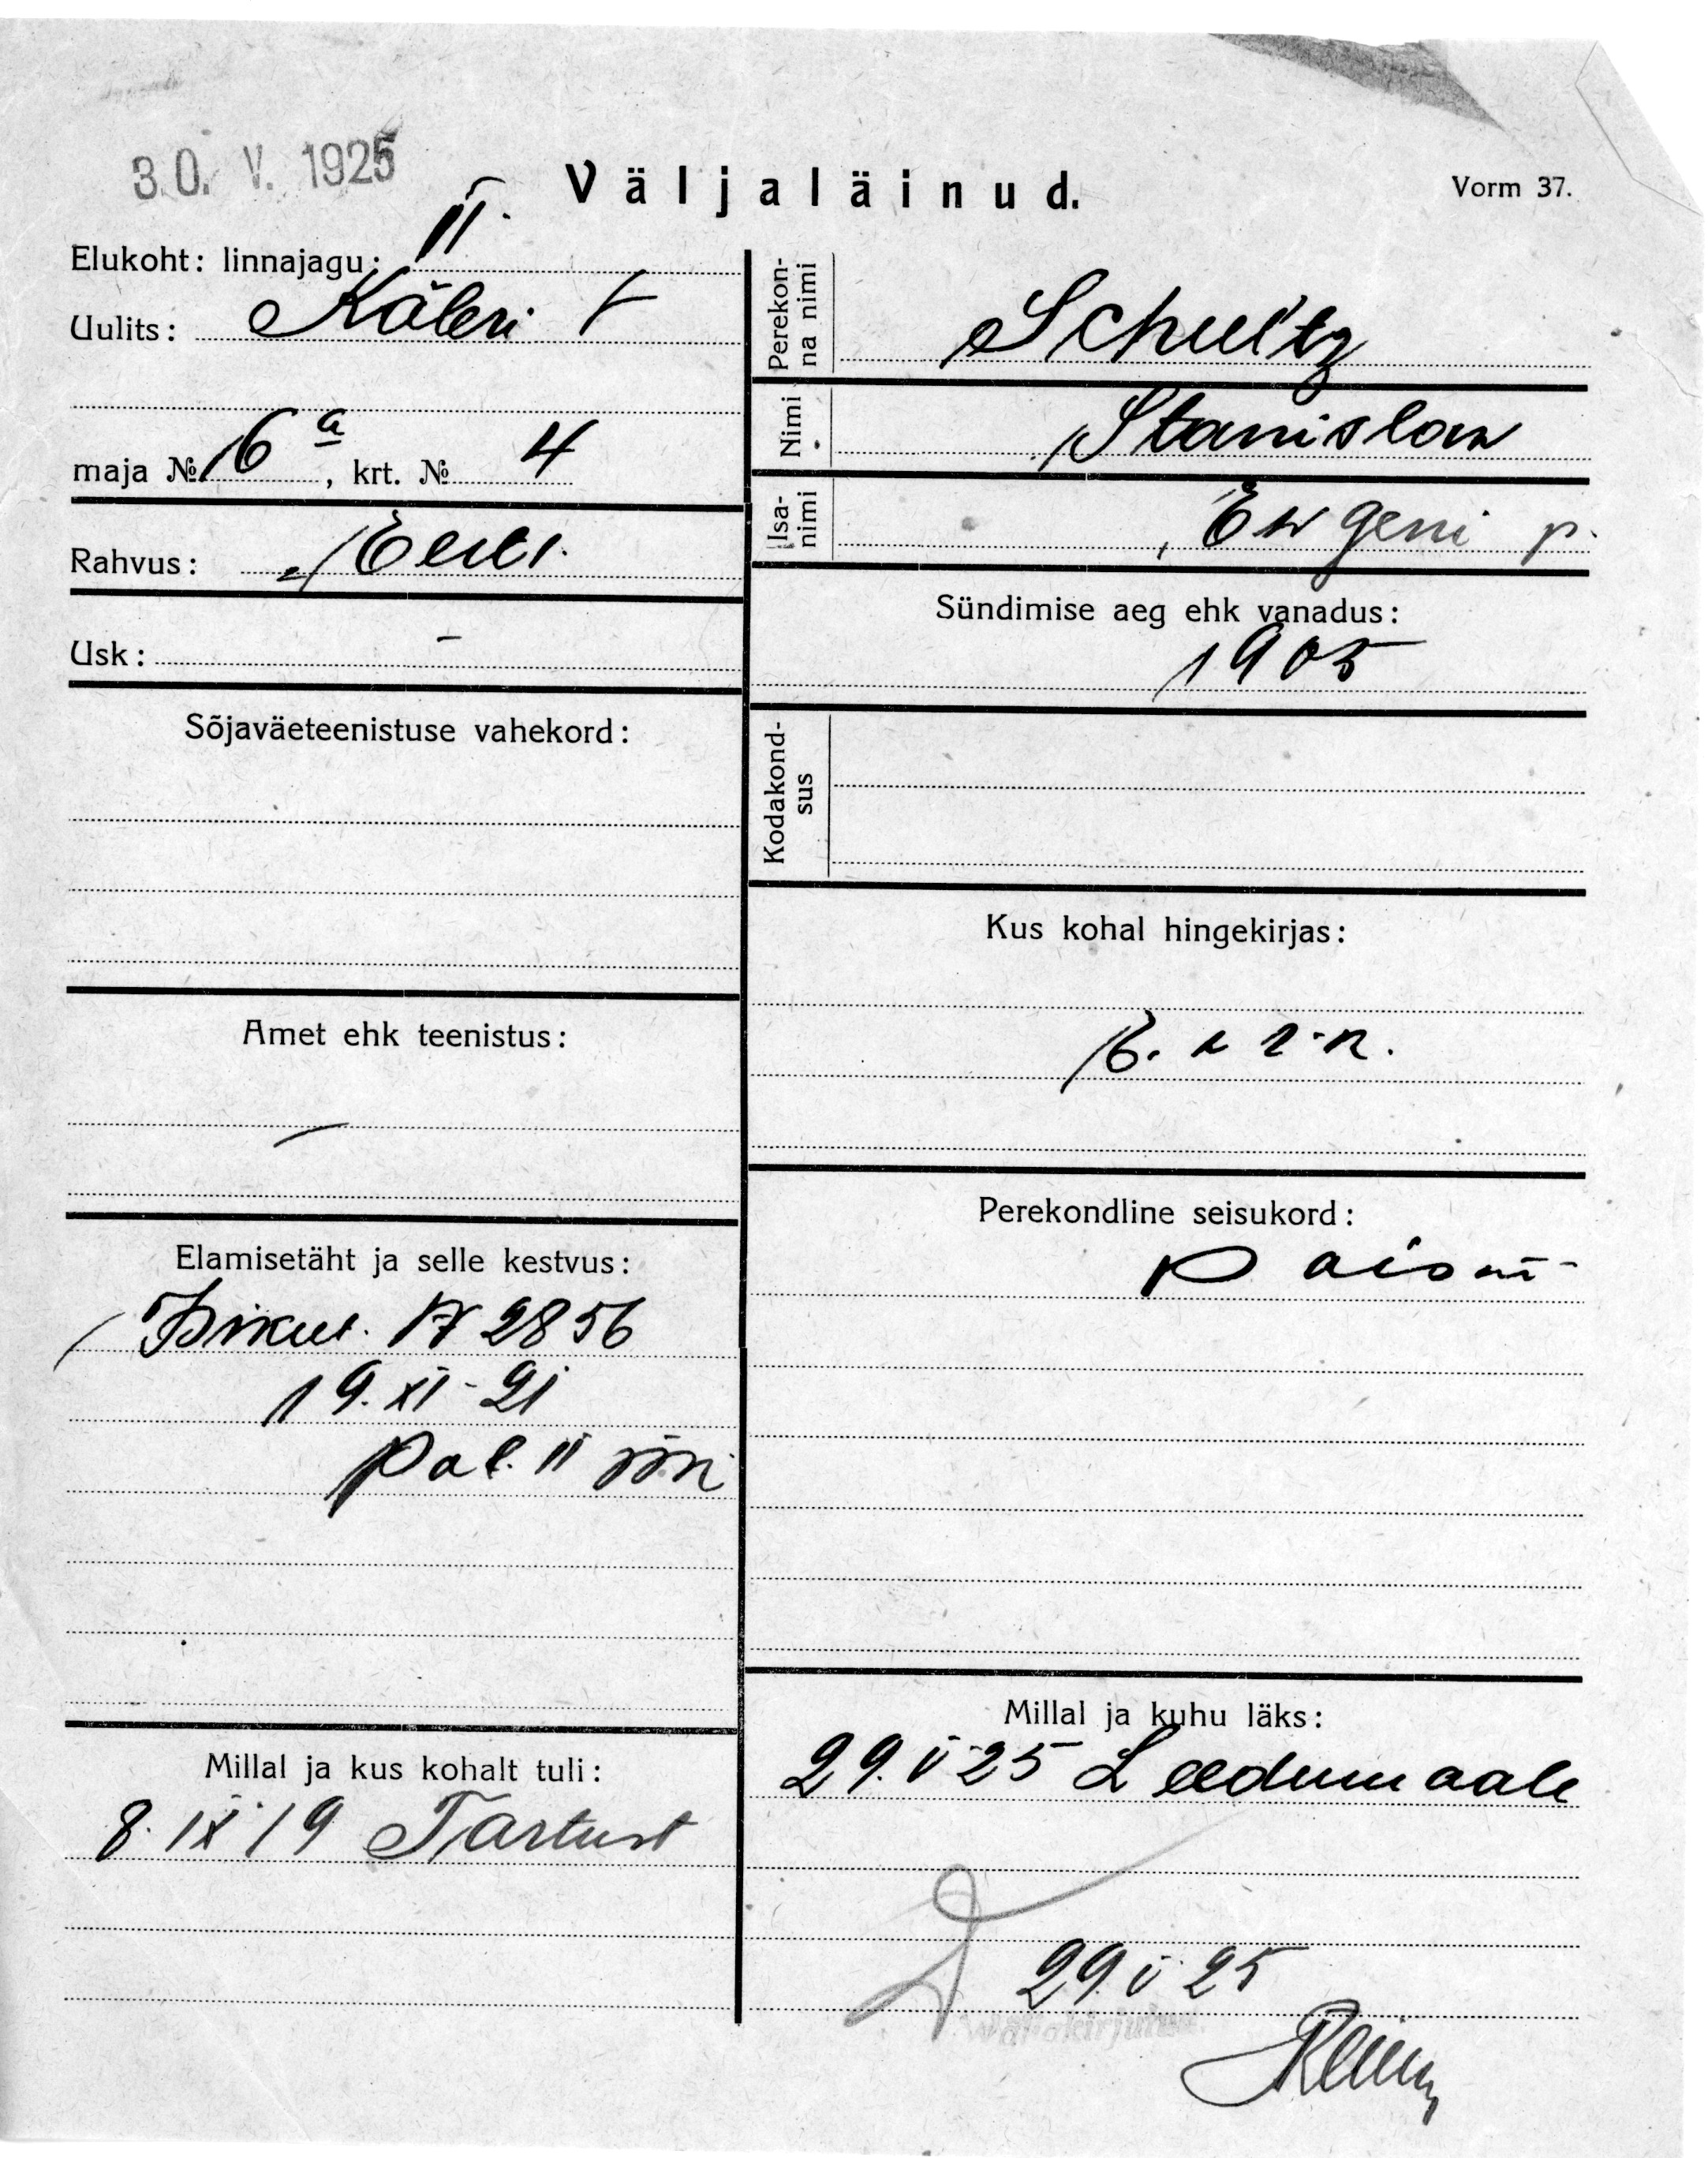 30. V. 1925
Väljaläinud.
Vorm 37.
Elukoht: linnajagu: II.
Uulits: Köleri t
maja № 16 a, krt. № 4
Rahvus: Eesti.
Usk: –
Sõjaväeteenistuse vahekord:
Amet ehk teenistus:
–
Elamisetäht ja selle kestvus:
№ 2856
19. XI - 21
Pol. II
Millal ja kus kohalt tuli:
8. IX 19 Tartust
Perekon-
na nimi
Schultz
Nimi
Stanislaw
Isa-
nimi
Ewgeni p.
Sündimise aeg ehk vanadus:
1905
Kodakond-
sus
Kus kohal hingekirjas:
Perekondline seisukord:
Millal ja kuhu läks:
29. V 25 Leedumaale
29. V 25
Wäljakirjutud.